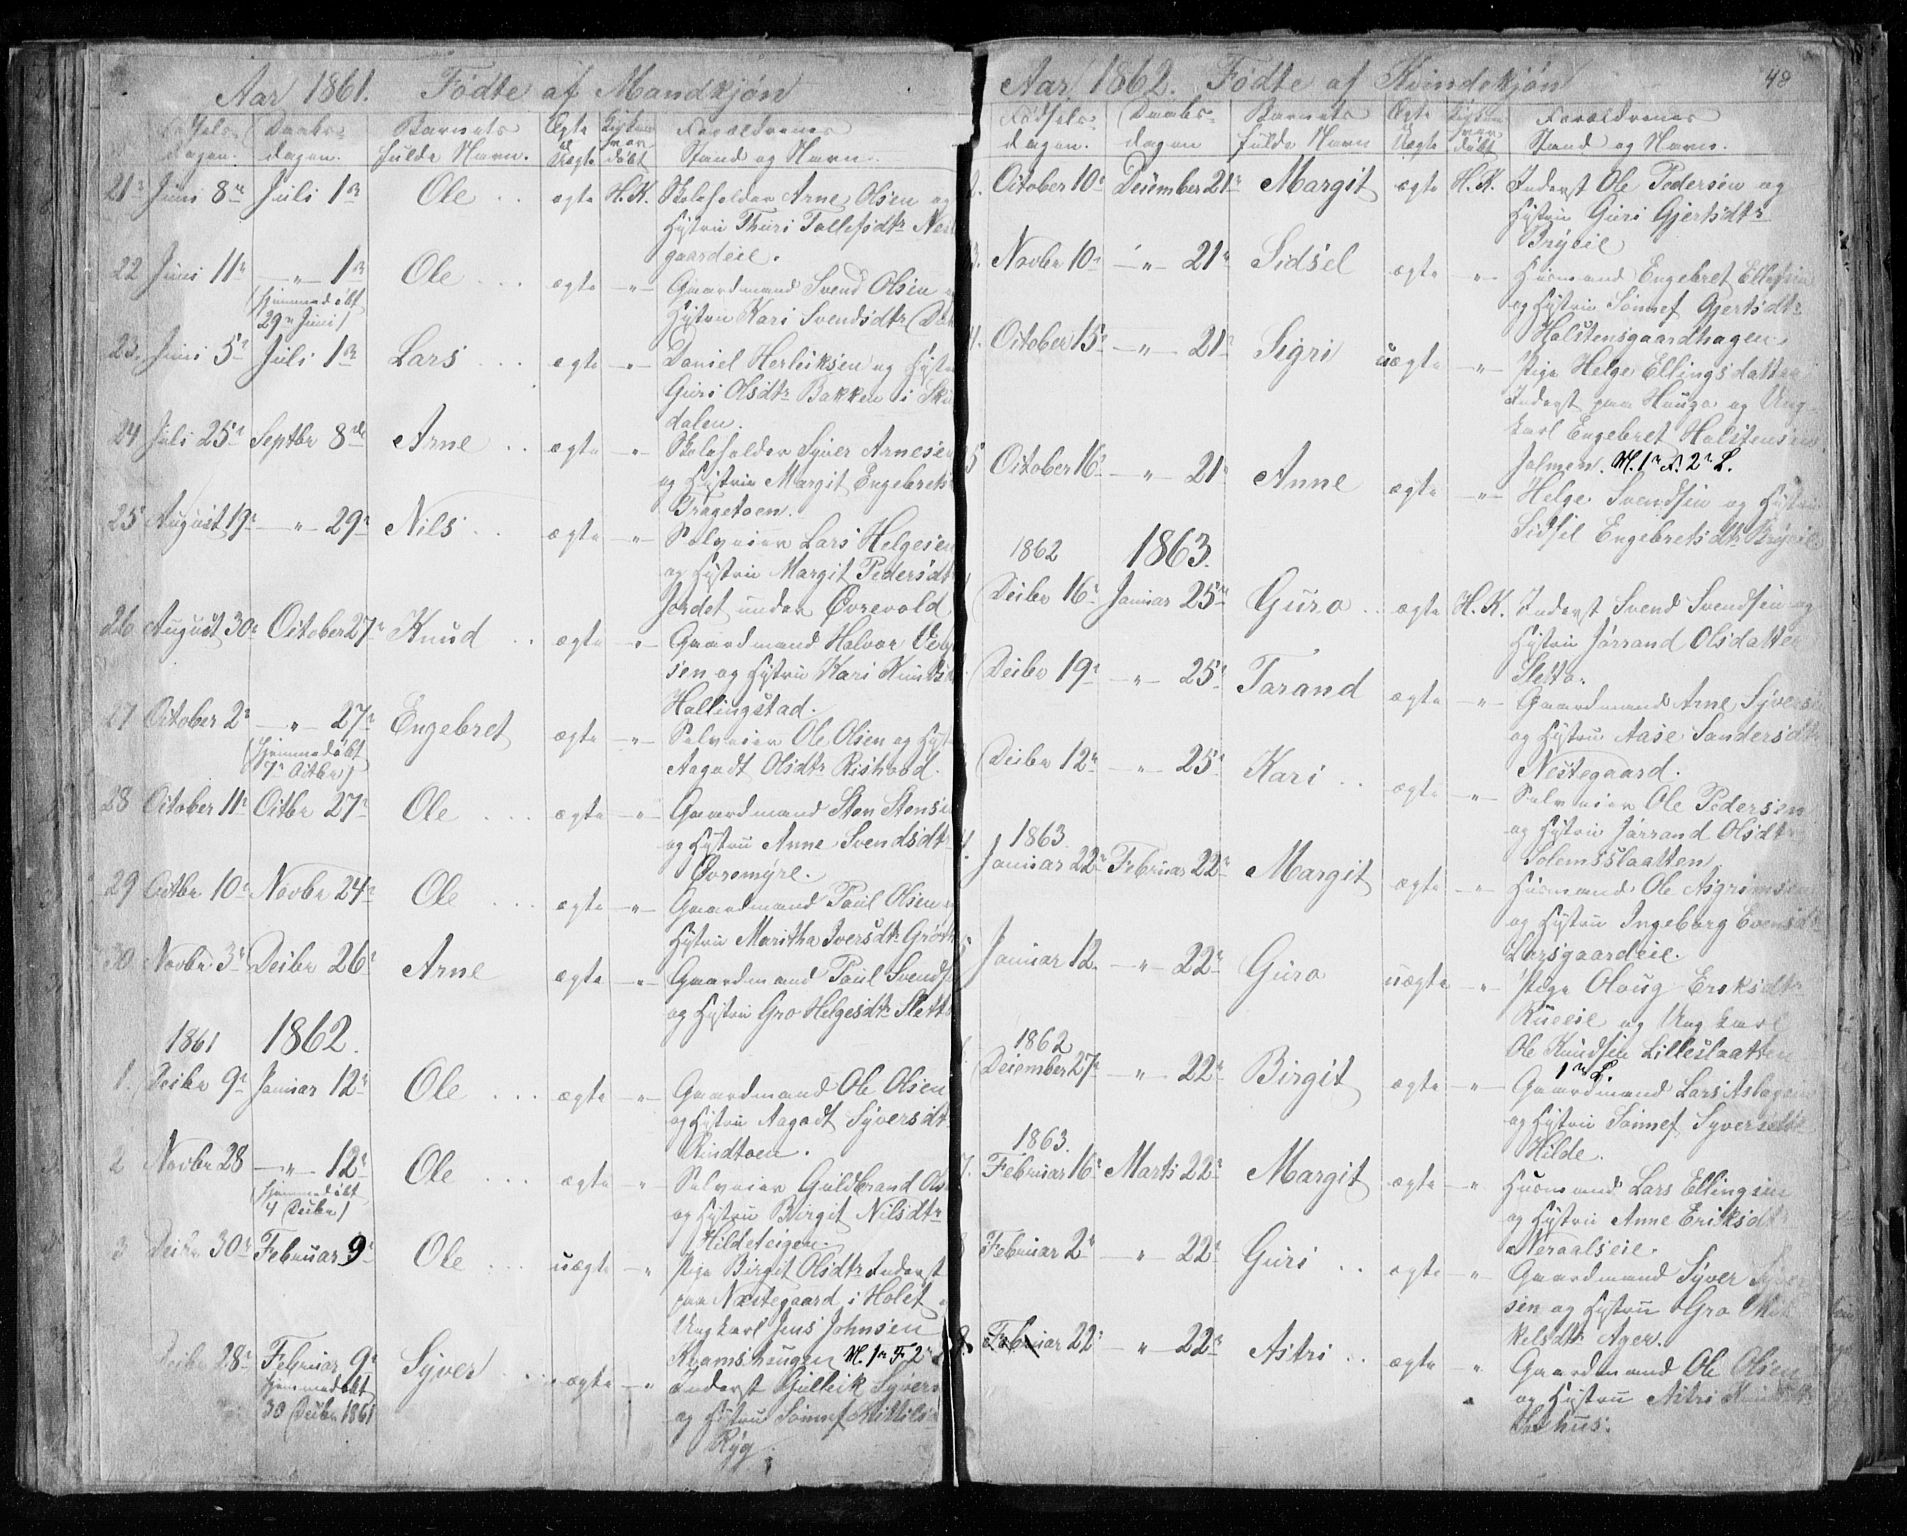 Aar 1861. Fødte af Mandkjøn
Fødsels- dagen. Daabs- dagen. Barnets fulde Navn. Ægte el. Uægte Forældrenes Stand og Navn.
21 Juni 8de Juli 1ste Ole ægte H.K. Skoleholder Arne Olsen og
Hystru Thuri Tollefsdtr
gaardeie.
22 Juni 11te —"— 1ste Ole ægte —"— Gaardmand Svend Olsen
(hjemmedøbt
29de Juni)
Hystru Kari Svendsdtr
23. Juni 5te Juli 1ste Lars ægte —"— Daniel Herleiksen og Hystru
Guri Olsdtr Bakken i
dalen.
24 Juli 25de Septbr 8de Arne ægte —"— Skoleholder Syver Arnesen
og Hystru Margit Engebrets
Trægetoen.
25 August 19de —"— 29de Nils ægte —"— Selveier Lars Helgesen
og Hystru Margit Pedersdtr
Jordet under Øvrevold
26 August 30te October 27de Knud ægte —"— Gaardmand Halvor
sen og Hystru Kari Knuds
Hallingstad.
27 October 2den —"— 27de Engebret ægte —"— Selveier Ole Olsen og Hyst
(hjemmedøbt
7de Octbr)
Aagodt Olsdtr Rishovd.
28 October 11te Octbr 27de Ole ægte —"— Gaardmand Sten Stensen
og Hystru Anne Svendsdtr
Øvremyre.
29 Octbr 10de Novbr 24de Ole ægte —"— Gaardmand Paul Olsen
Hystru Maritha Iversdtr
30 Novbr 3die Decbr 26de Arne ægte —"— Gaardmand Paul Svends
og Hystru Gro Helgesdtr Sletto
1861 1862.
1. Decbr 9de Januar 12te Ole ægte —"— Gaardmand Ole Olsen
og Hystru Aagodt Syversdtr
Rindtoen.
2 Novbr 28 —"— 12te Ole ægte —"— Selveier Guldbrand Ols
(hjemmedøbt
4 Decbr)
og Hystru Birgit Nilsdtr
Hildeteigen.
3 Decbr 30te Februar 9de Ole uægte —"— Pige Birgit Olsdtr Inderst
paa Næstegaard i Holet
Ungkarl Jens Johnsen
Kvamshaugen M. 1ste F. 2det
Decbr 28de Februar 9de Syver ægte —"— Inderst Gulleik Syvers
hjemmedøbt
30 Decbr 1861
og Hystru Sønnef Kittils
Ryg.
Aar 1862. Fødte af Kvindekjøn 48
Fødsels- dagen. Daabs- dagen Barnets fulde Navn Ægte el. Uægte Forældrenes Stand og Navn.
2. October 10de December 21de Margit ægte H.K. Inderst Ole Pedersen og
Hystru Guri Gjertsdtr
Bryeie
3. Novbr 10de —"— 21de Sidsel ægte —"— Husmand Engebret Ellefsen
og Hystru Sønnef Gjertsdtr
Halstensgaardhagen
4. October 15de —"— 21de Sigri uægte —"— Pige Helge Ellingsdatter
Inderst paa Haugo og Ung-
karl Engebret Halstensen
Jalmen. M. 1ste F. 2det L.
5 October 16de —"— 21de Anne ægte —"— Helge Svendsen og Hystru
Sidsel Engebretsdtr Bryeie
1862 1863.
Decbr 16de Januar 25de Guro ægte H.K. Inderst Svend Svendsen og
Hystru Jørrand Olsdatter
Sletto.
Decbr 19de —"— 25de Tarand ægte —"— Gaardmand Arne Syversen
og Hystru Aase Sandersdtr
Nestegaard.
Decbr 12te —"— 25de Kari ægte —"— Selveier Ole Pedersen
og Hystru Jørrand Olsdtr
Solemsslaatten
1863.
4. Januar 22de Februar 22de Margit ægte —"— Husmand Ole Asgrimsen
og Hystru Ingeborg Evensdtr
Larsgaardeie.
5 Januar 12. —"— 22de Guro uægte —"— Pige Olaug Eriksdtr
Rueeie og Ungkarl
Ole Knudsen Lilleslaatten
1ste L.
1862
December 27de —"— 22de Birgit ægte —"— Gaardmand Lars Aslagsen
og Hystru Sønnef Syversdtr
Hilde.
1863.
7. Februar 16de Marts 22de Margit ægte —"— Husmand Lars Ellingsen
og Hystru Anne Eriksdtr
Neraalseie.
Februar 2den —"— 22de Guri ægte —"— Gaardmand Syver Syver
sen og Hystru Gro Mik
kelsdtr Ager.
9. Februar 22de —"— 22de Astri ægte —"— Gaardmand Ole Olsen
og Hystru Astri Knudsdtr